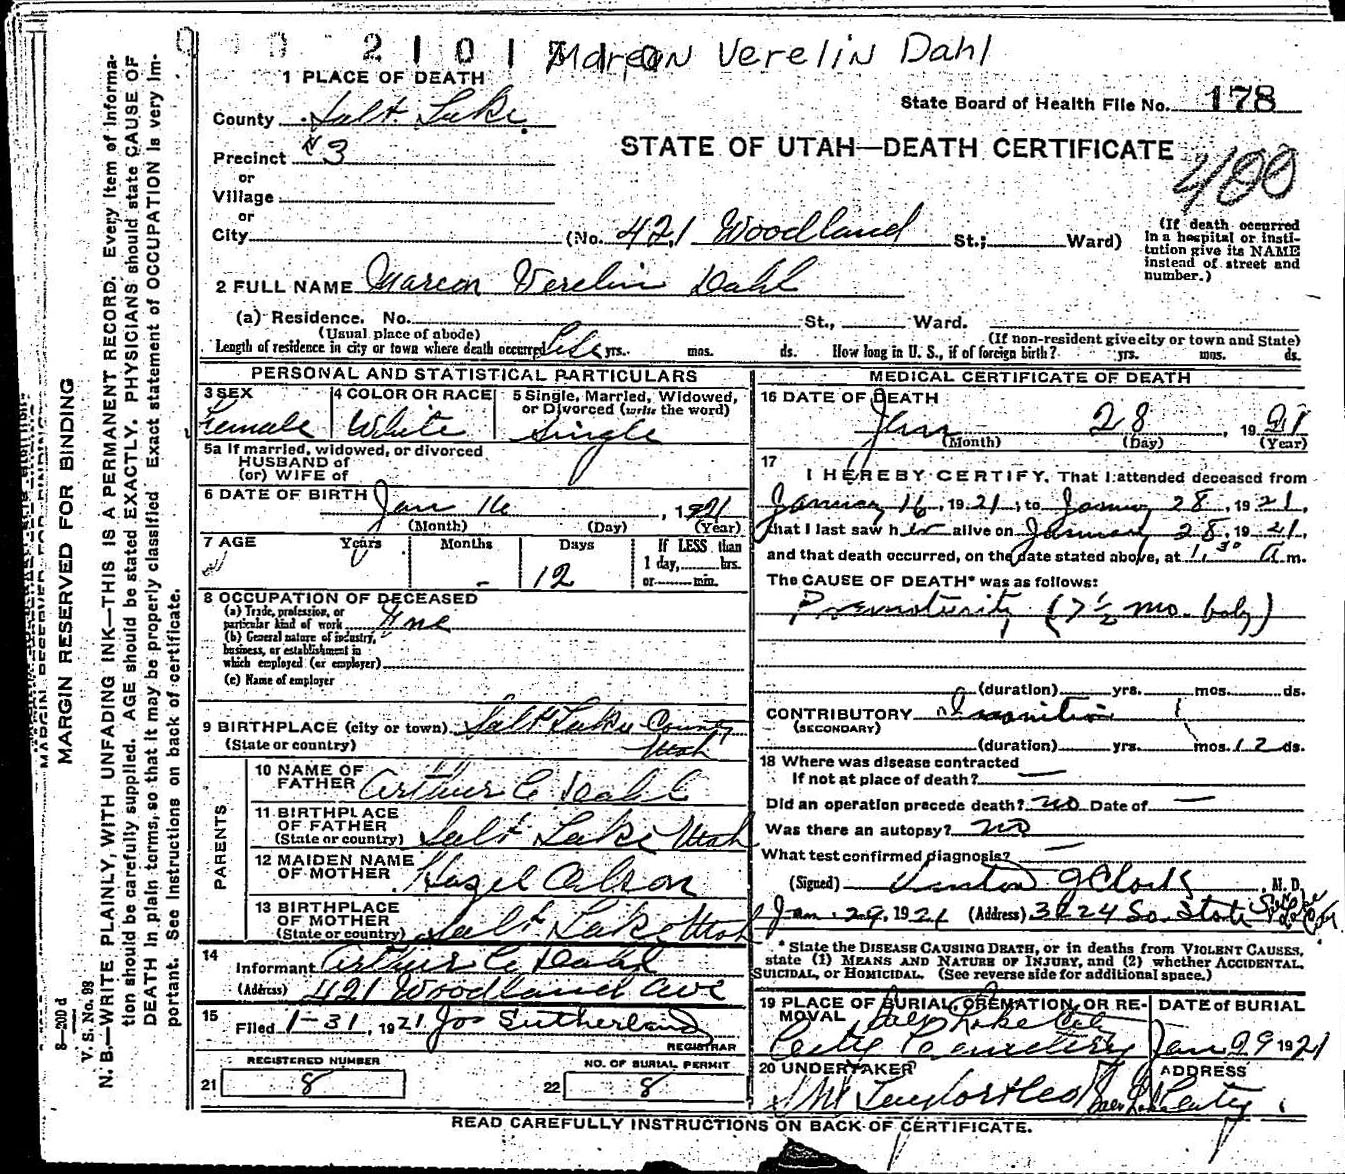 2 1 0 1 7 1 0 Marcon Verelin Dahl
1 PLACE OF DEATH
County Salt Lake.
State Board of Health File No. 178
Precinct #3
STATE OF UTAH—DEATH CERTIFICATE
400
or
Village
or
City (No. 421 Woodland St.; Ward)
(If death occurred in a hospital or insti-
tution give its NAME
instead of street and
number.)
2 FULL NAME Marcon Verelin Dahl
(a) Residence. No. St., Ward.
(Usual place of abode) (If non-resident give city or town and State)
Length of residence in city or town where death occurred Life yrs. mos. ds. How long in U. S., if of foreign birth? yrs. mos. ds.
PERSONAL AND STATISTICAL PARTICULARS
3 SEX Female
4 COLOR OR RACE White
5 Single, Married, Widowed,
or Divorced (write the word)
Single
5a If married, widowed, or divorced
HUSBAND of
(or) WIFE of
6 DATE OF BIRTH Jan 16, 1921
(Month) (Day) (Year)
7 AGE Years Months Days If LESS than
1 day, hrs.
- 12 or min.
8 OCCUPATION OF DECEASED
(a) Trade, profession, or
particular kind of work
(b) General nature of industry,
business, or establishment in
which employed (or employer)
(c) Name of employer
9 BIRTHPLACE (city or town) Salt Lake County
(State or country) Utah
PARENTS
10 NAME OF
FATHER Arthur C Dahl
11 BIRTHPLACE
OF FATHER
(State or country) Salt Lake Utah
12 MAIDEN NAME
OF MOTHER Hazel Olson
13 BIRTHPLACE
OF MOTHER
(State or country) Salt Lake Utah
14
Informant Arthur C Dahl
(Address) 421 Woodland Ave
15
Filed 1-31, 1921 Jos Sutherland
REGISTRAR
REGISTERED NUMBER
21 8
NO. OF BURIAL PERMIT
22 8
MEDICAL CERTIFICATE OF DEATH
16 DATE OF DEATH
Jan 28, 1921
(Month) (Day) (Year)
17
I HEREBY CERTIFY, That I attended deceased from
January 16, 1921, to January 28, 1921,
that I last saw her alive on January 28, 1921,
and that death occurred, on the date stated above, at 1.30 a m.
The CAUSE OF DEATH* was as follows:
Prematurity (7½ mo. baby)
(duration) yrs. mos. ds.
CONTRIBUTORY Inanition
(SECONDARY)
(duration) yrs. mos. 12 ds.
18 Where was disease contracted
If not at place of death? —
Did an operation precede death? no Date of —
Was there an autopsy? no
What test confirmed diagnosis? —
(Signed) M. D.
Jan. 29, 1921 (Address) 3024 So. State
* State the DISEASE CAUSING DEATH, or in deaths from VIOLENT CAUSES,
state (1) MEANS AND NATURE OF INJURY, and (2) whether ACCIDENTAL,
SUICIDAL, or HOMICIDAL. (See reverse side for additional space.)
19 PLACE OF BURIAL, CREMATION, OR RE-
MOVAL Salt Lake City
City Cemetery
DATE of BURIAL
Jan 29 1921
20 UNDERTAKER
ADDRESS
Salt Lake City.
READ CAREFULLY INSTRUCTIONS ON BACK OF CERTIFICATE.
MARGIN RESERVED FOR BINDING
8—20D d
V. S. No. 98
N. B.—WRITE PLAINLY, WITH UNFADING INK—THIS IS A PERMANENT RECORD. Every item of Informa-
tion should be carefully supplied. AGE should be stated EXACTLY. PHYSICIANS should state CAUSE OF
DEATH in plain terms, so that it may be properly classified. Exact statement of OCCUPATION is very im-
portant. See Instructions on back of certificate.